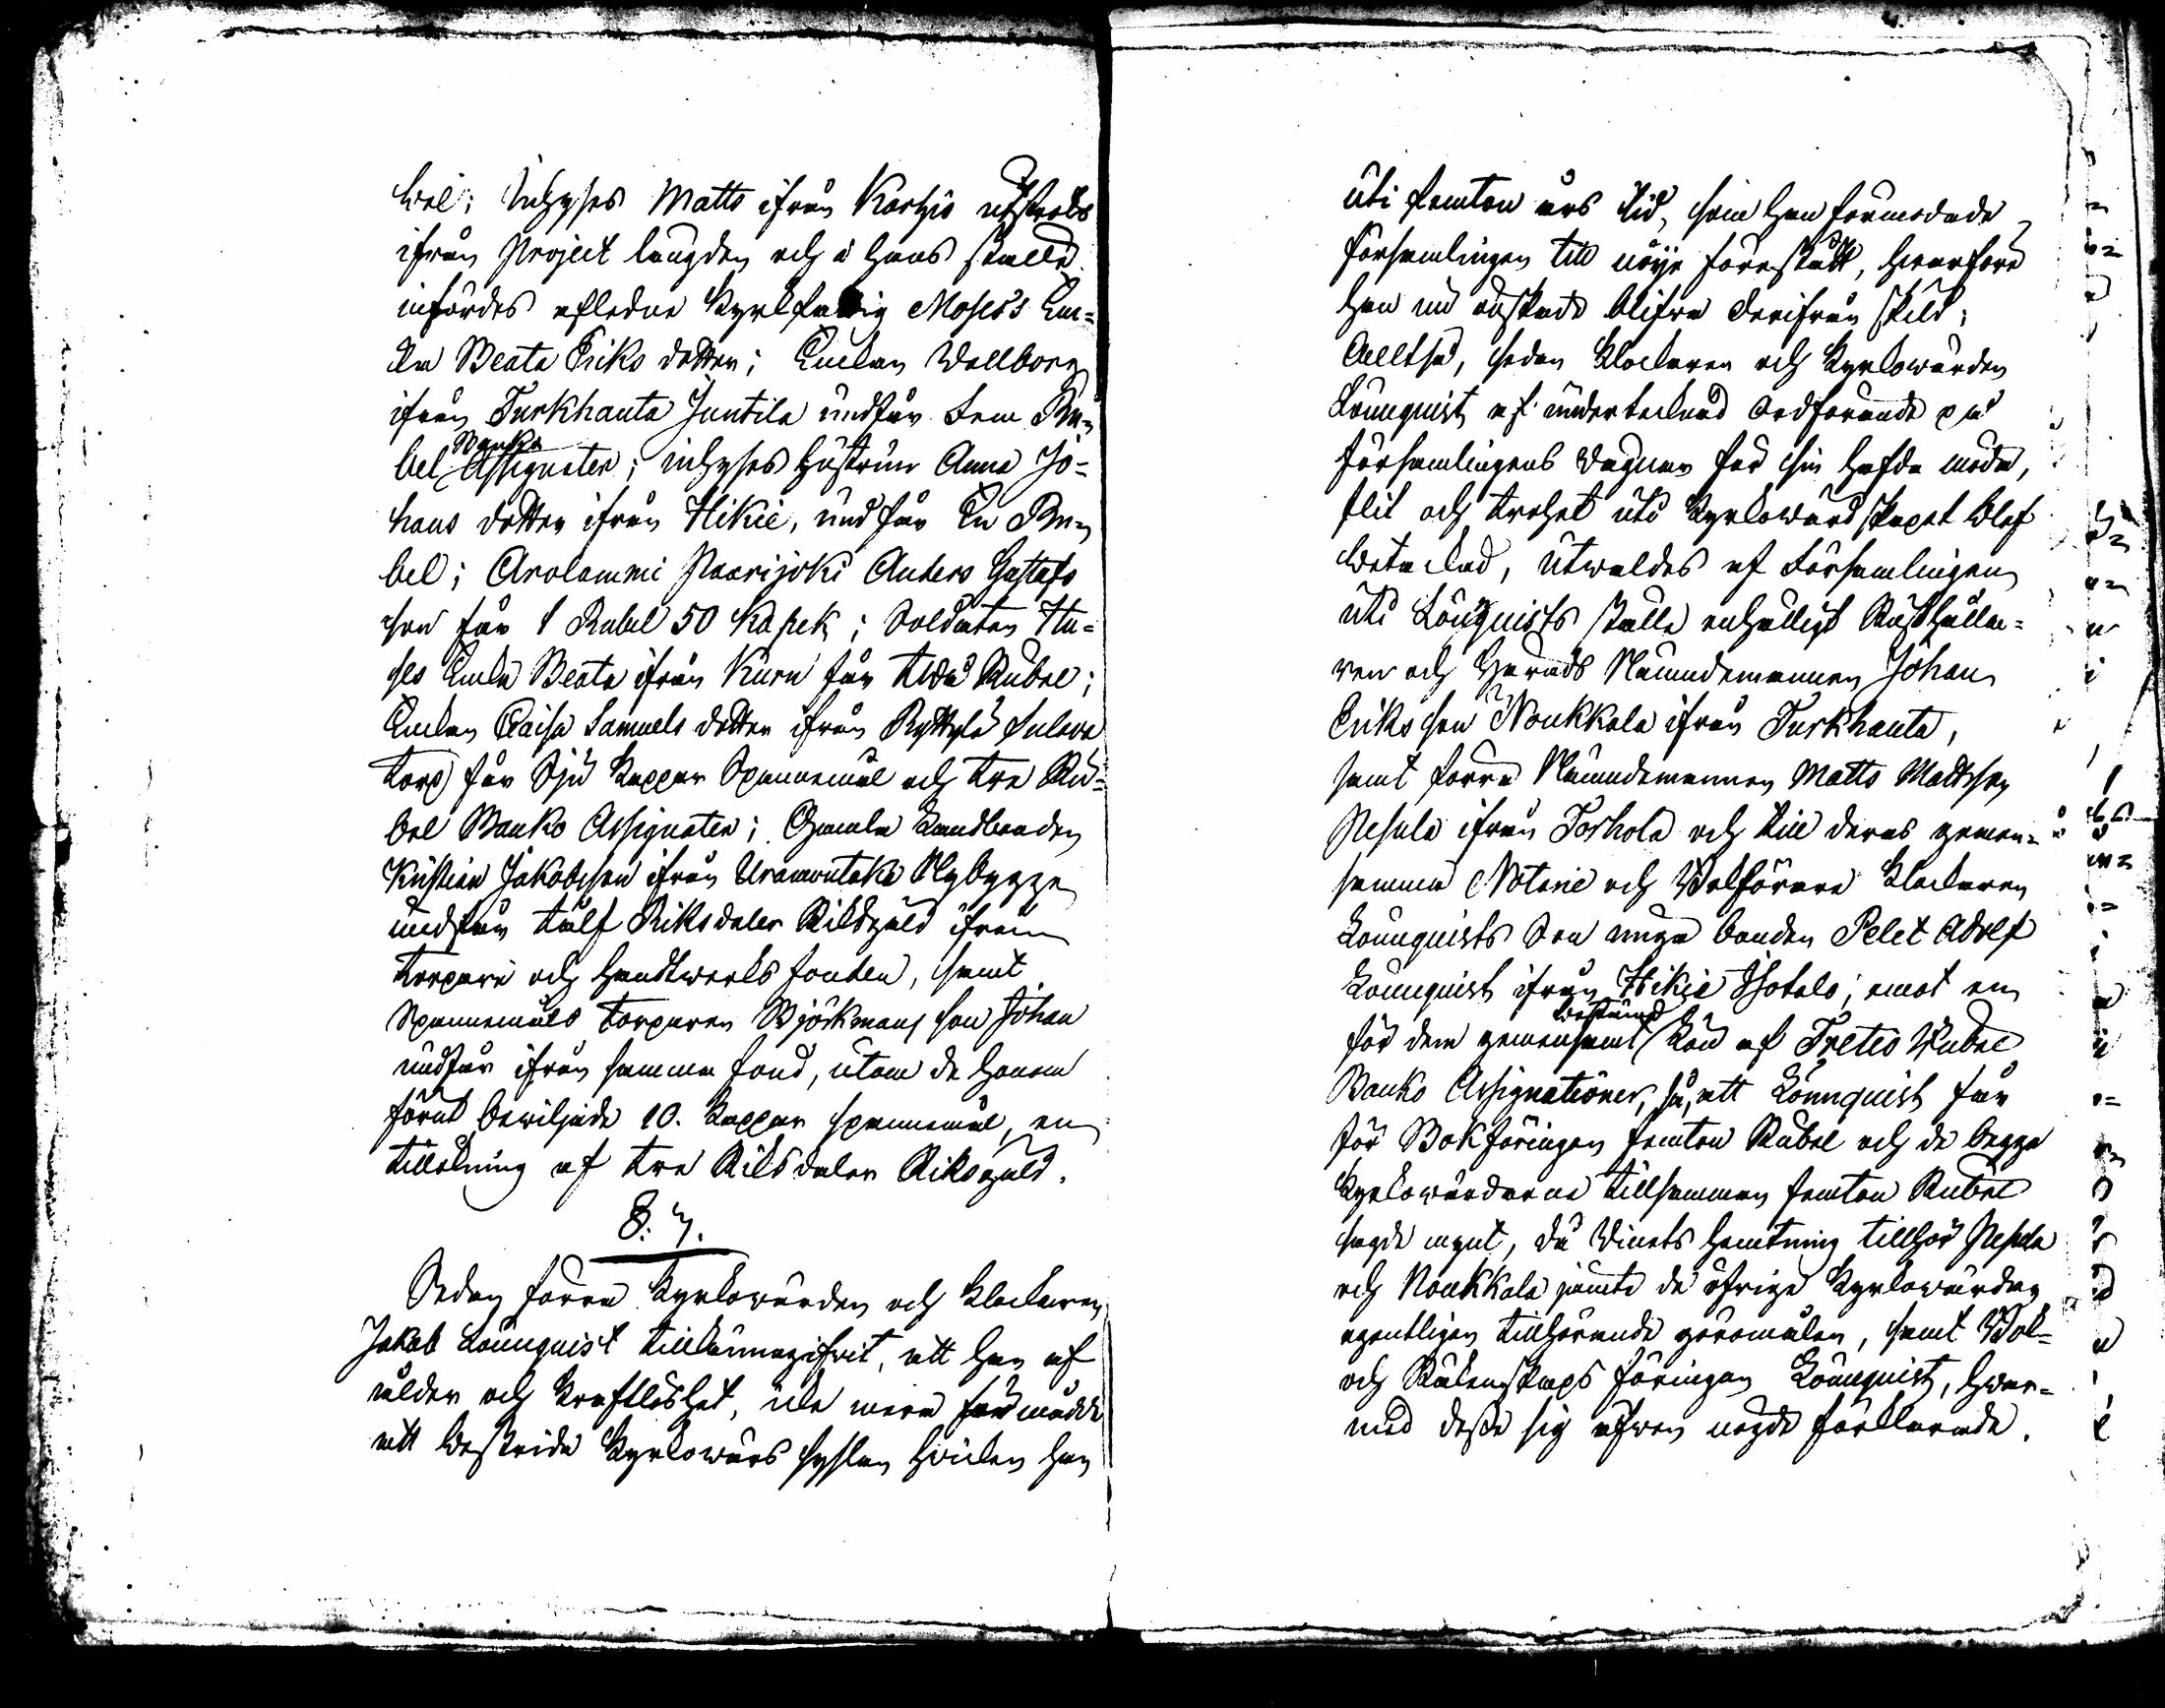 bel; Inhyses Matts ifrån Karhis utströks
ifrån Project längden och i hans ställe
infördes afledne Kyrkfattig Moses's En=
ka Beata Eriks dotter; Enkan Wallborg
ifrån Turkhauta Juntila undfår Fem Ru=
bel Banko Assignater; inhyses hustrun Anna Jo=
hans dotter ifrån Hikiä, undfår En Ru=
bel; Arolammi Paarijoki Anders Gustafs
son får 1 Rubel 50 Kopek; Soldaten Ha=
ses Enka Beata ifrån Kuru får Två Rubel;
Enkan Caisa Samuels dotter ifrån Ryttylä Sulava
Torp får Sju Kappar Spannemål och tre Ru=
bel Banko Assignater; Gamla Landbonden
Kristian Jakobsson ifrån Uramontaka Nybygge
undfår tolf Riksdaler Riksgäld ifrån
Torpare och Handtwerks fonden, samt
Spannemåls Torparen Björkmans son Johan
undfår ifrån samma fond, utom de honom
förut beviljade 10. Kappar spannemål, en
tillökning af tre Riksdaler Riksgäld.
§. 7.
Sedan förra Kyrkowärden och Klockaren
Jakob Lönnquist tillkännagifvit, att han af
ålder och kraftlöshet, icke mera förmådde
att bestrida Kyrkowärds syslan hvilken han
uti femton års tid, som han förmodade
församlingen till nöye förestått, hvarföre
han nu önskade blifva derifrån skild;
Alltså, sedan Klockaren och Kyrkowärden
Lönnquist af undertecknad Ordförande på
församlingens vägnar för sin hafda möda,
flit och trohet uti Kyrkowärdskapet blef
betackad, utvaldes af Församlingen
uti Lönquists ställe enhälligt Rusthålla=
ren och Härads Nämndemannen Johan
Eriksson Noukkala ifrån Turkhauta,
samt förra Nämndemannen Matts Mattsson
Nesula ifrån Torhola och till deras gemen=
samma Notarie och Bokförare Klockaren
Lönnquists Son unga bonden Adolf
Lönnquist ifrån Hikiä Isotalo; emot en
för dem gemensamt bestämd Lön af Tretio Rubel
Banko Assignationer, så, att Lönnquist får
för Bokföringen femton Rubel och de begge
Kyrkowärdarne tillsamman femton Rubel
sagde mynt, då Vinets hemtning tillhör Nesula
och Noukkala jämte de öfriga Kyrkowärden
egentligen tillhörande göromålen, samt Bok=
och Räkenskaps föringen Lönnquist, hvar=
med desse sig äfven nögde förklarade.